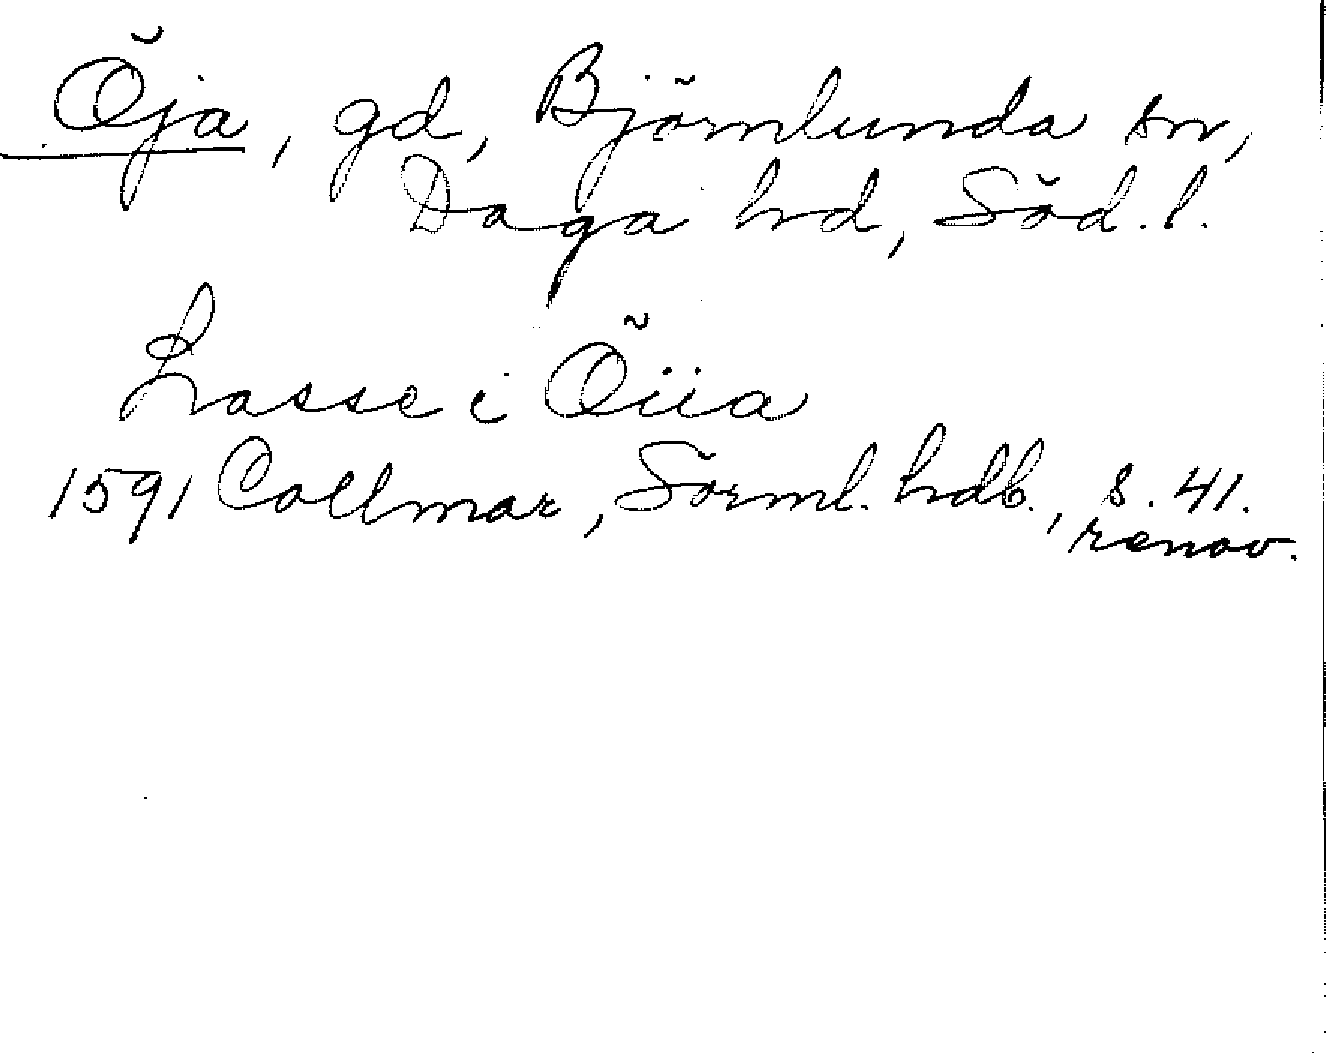 Öja, gd, Björnlunda sn,
Daga hd, Söd. l.
Lasse i Öiia
1591 Collmar, Sörml. hdb., s. 41.
renov.